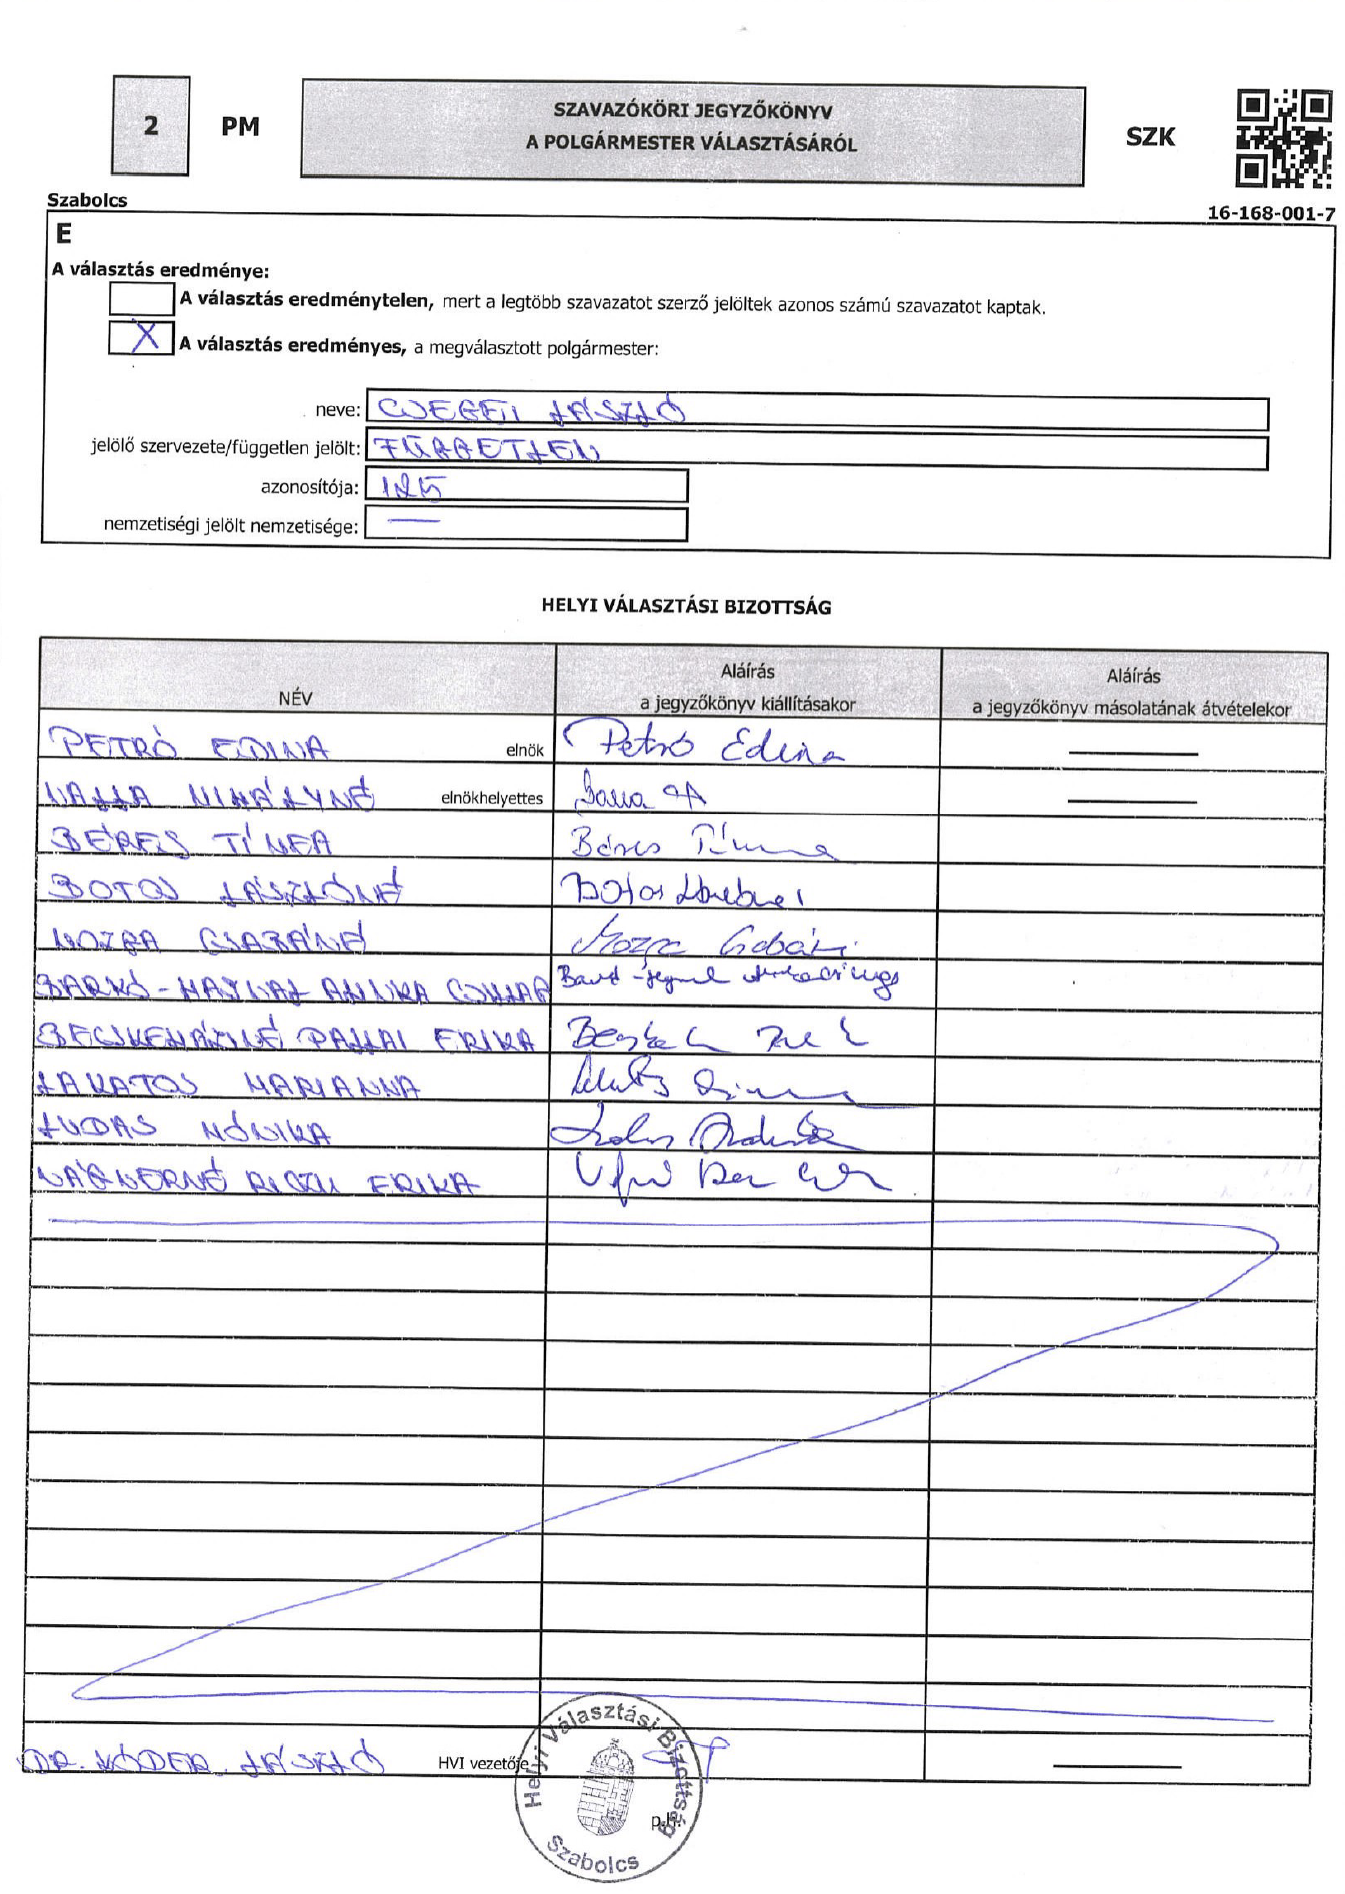 2
PM
SZAVAZÓKÖRI JEGYZŐKÖNYV
A POLGÁRMESTER VÁLASZTÁSÁRÓL
SZK
Szabolcs
16-168-001-7
E
A választás eredménye:
A választás eredménytelen, mert a legtöbb szavazatot szerző jelöltek azonos számú szavazatot kaptak.
X A választás eredményes, a megválasztott polgármester:
neve: CSEGEI LÁSZLÓ
jelölő szervezete/független jelölt: FÜGGETLEN
azonosítója: 125
nemzetiségi jelölt nemzetisége: —
HELYI VÁLASZTÁSI BIZOTTSÁG
NÉV
Aláírás
a jegyzőkönyv kiállításakor
Aláírás
a jegyzőkönyv másolatának átvételekor
PETRÓ EDINA elnök Petró Edina
MIHÁLYNÉ elnökhelyettes
BÉRES TÍMEA Béres Tímea
BOTOS LÁSZLÓNÉ Botos Lászlóné
MOZGA CSABÁNÉ Mozga Csabáné
ERIKA
LAKATOS MARIANNA
LUDAS MÓNIKA
VÁGNERNÉ ERIKA
DR. LÁSZLÓ HVI vezetője
p.h.
Helyi Választási Bizottság
Szabolcs